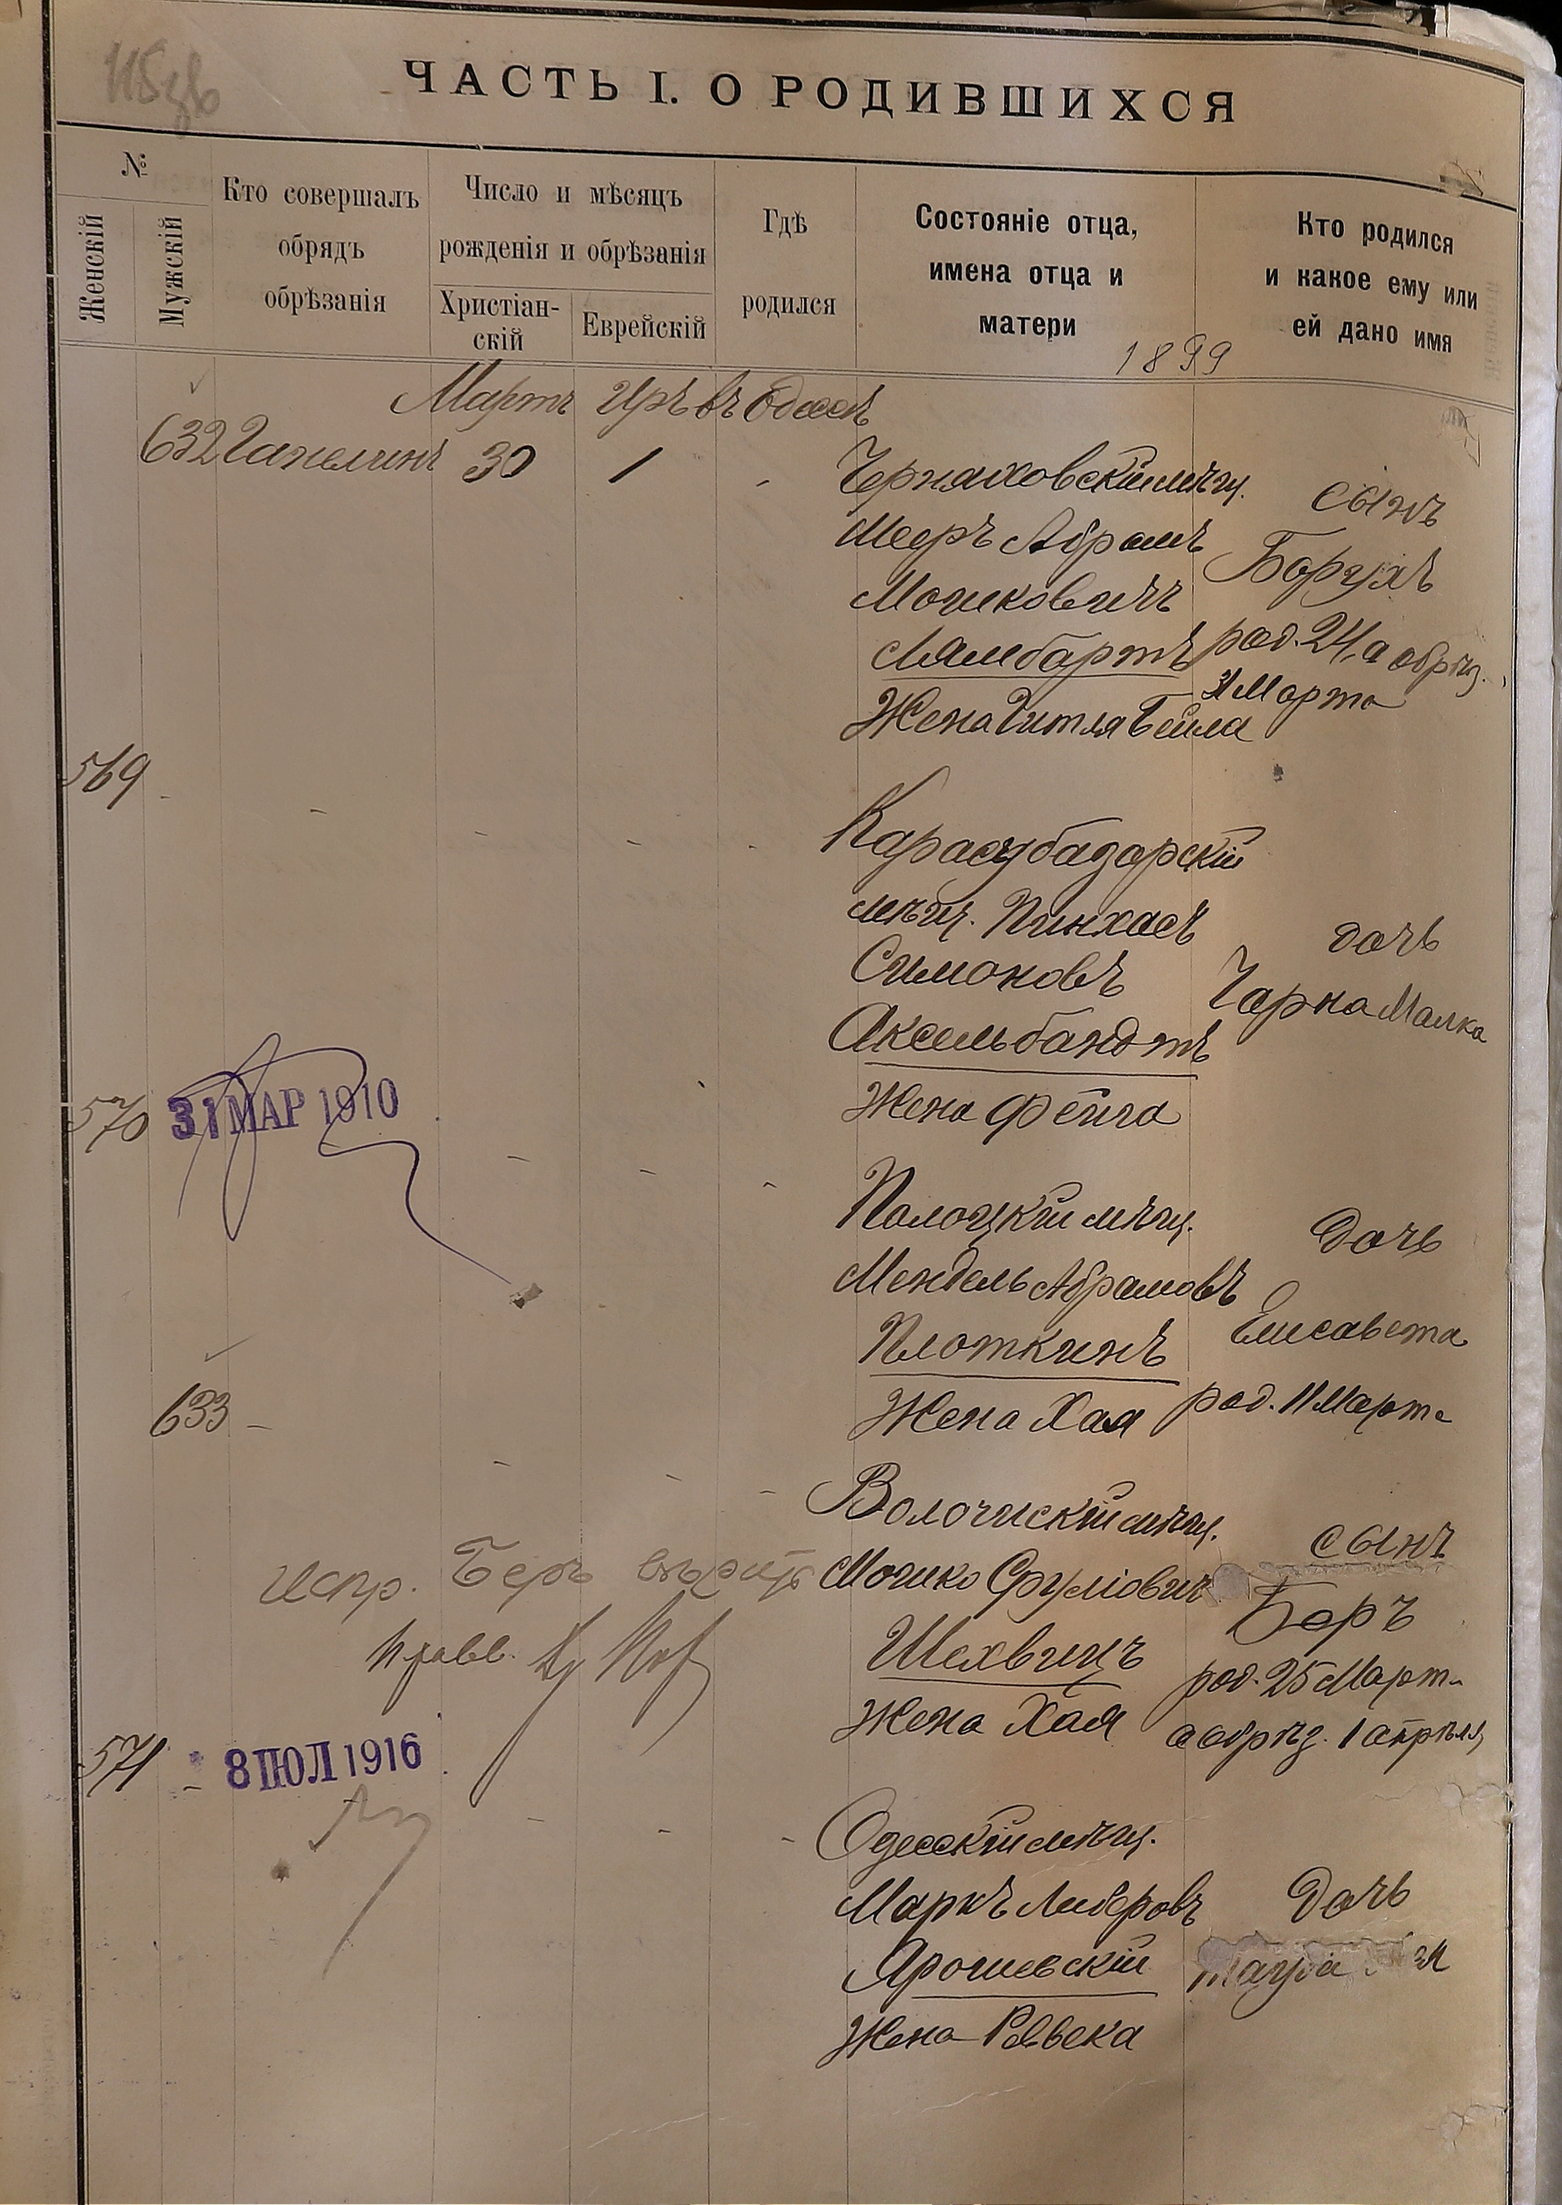 ЧАСТЬ I. О РОДИВШИХСЯ
№
Женскій
Мужскій
Кто совершалъ
обрядъ
обрѣзанія
Число и мѣсяцъ
рожденія и обрѣзанія
Христіан-
скій
Еврейскій
Гдѣ
родился
Состояніе отца,
имена отца и
матери
Кто родился
и какое ему или
ей дано имя
1899
Мартъ Иръ въ Одессѣ
632 Гапелинъ 30 1 -
Черняховскій мѣщ.
Мееръ Абрамъ
Мошковичъ
Лямбартъ
Жена Гитля Бейла
сынъ
Борухъ
род. 24, а обрѣз.
31 Марта
569 - - - - -
Карасубазарскій
мѣщ. Пинхасъ
Симоновъ
Аксельбандтъ
Жена Фейга
дочь
Чарна Малка
570 31 МАР 1910 - - -
Полоцкій мѣщ.
Мендель Абрамовъ
Плоткинъ
Жена Хая
дочь
Елисавета
род. 11 Марта
633 - - - -
Волочискій мѣщ.
Мошко Сруліовичъ
Шехвицъ
Жена Хая
сынъ
Беръ
род. 25 Марта
а обрѣз. 1 апрѣля
испр. Беръ
571 - 8 ІЮЛ 1916 - - -
Одесскій мѣщ.
Маркъ Либеровъ
Ярошевскій
Жена Ревека
дочь